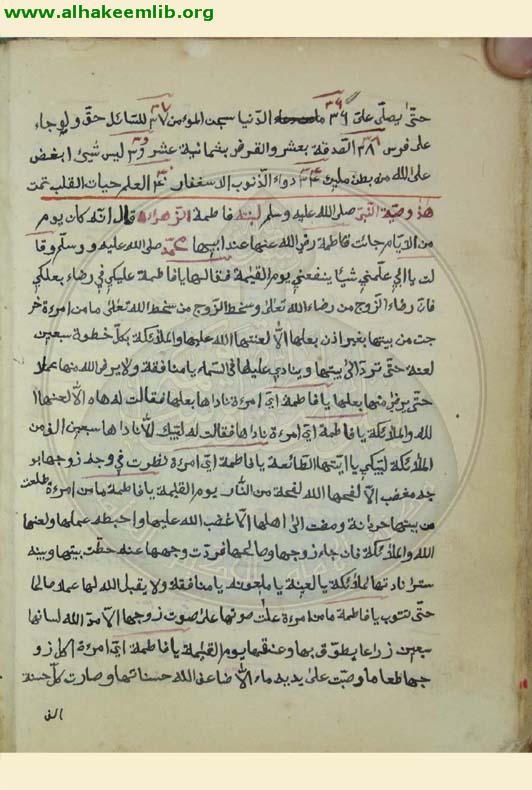 www.alhakeemlib.org
حتى يصلى على ٣٦ الدنيا سجن المؤمن ٣٧ للسائل حق ولو جاء
على فرس ٣٨ الصدقة بعشر والقرض بثمانية عشر ٣٩ ليس شيئ ابغض
على الله من بطن ملئ دواء الذنوب الاستغفار ٤٠ العلم حيات القلب تمت
هذا وصية النبى صلى الله عليه وسلم لبنته فاطمة الزهراء قال انه كان يوم
من الايام جائت فاطمة رضي الله عنها عند ابيها محمد صلى الله عليه وسلم وقا
لت يا ابي علمني شيئا ينفعني يوم القيمة فقال لها يا فاطمة عليكي في رضاء بعلكي
فان رضاء الزوج من رضاء الله تعالى وسخط الزوج من سخط الله تعالى ما من امرءة خر
جت من بيتها بغير اذن بعلها الا لعنتها الله عليها والملائكة بكل خطوة سبعين
لعنه حتى ترد الى بيتها وينادي عليها في السماء يا منافقة ولا يرض الله منها عملا
حتى يرض منها بعلها يا فاطمة اي امرءة ناداها بعلها فقالت له هاه الا لعنها ا
لله والملائكة يا فاطمة اي امرءة ناداها فقالت له لبيك الا ناداها سبعين الف من
الملائكة لبيكي يا ايتها الطائعة يا فاطمة اي امرءة نظرت في وجه زوجها بو
جه مغضب الا لفحها الله لفحة من النار يوم القيمة يا فاطمة ما من امرءة طلعت
من بيتها حردانة ومضت الى اهلها الا غضب الله عليها واحبطه عملها ولعنها
الله والملائكة فان جاء زوجها وصالحها فردت وجهها عنه حطت بينها وبينه
سترا نادتها الملائكة يا لعينة يا ملعونه يا منافقة ولا يقبل الله لها عملا صالحا
حتى تتوب يا فاطمة ما من امرءة علت صوتها على صوت زوجها الا مد الله لسانها
سبعين زراعا يطوق بها وعنقها يوم القيمة يا فاطمة اي امرءة اكل زو
جها طعاما وصبت على يديه ماء الا ضاعف الله حسناتها وصارت كل حسنة
الف